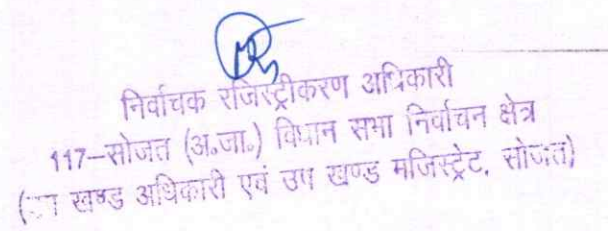 निर्वाचक रजिस्ट्रीकरण अधिकारी
117-सोजत (अ.जा.) विधान सभा निर्वाचन क्षेत्र
खण्ड अधिकारी एवं उप खण्ड मजिस्ट्रेट, सोजत)